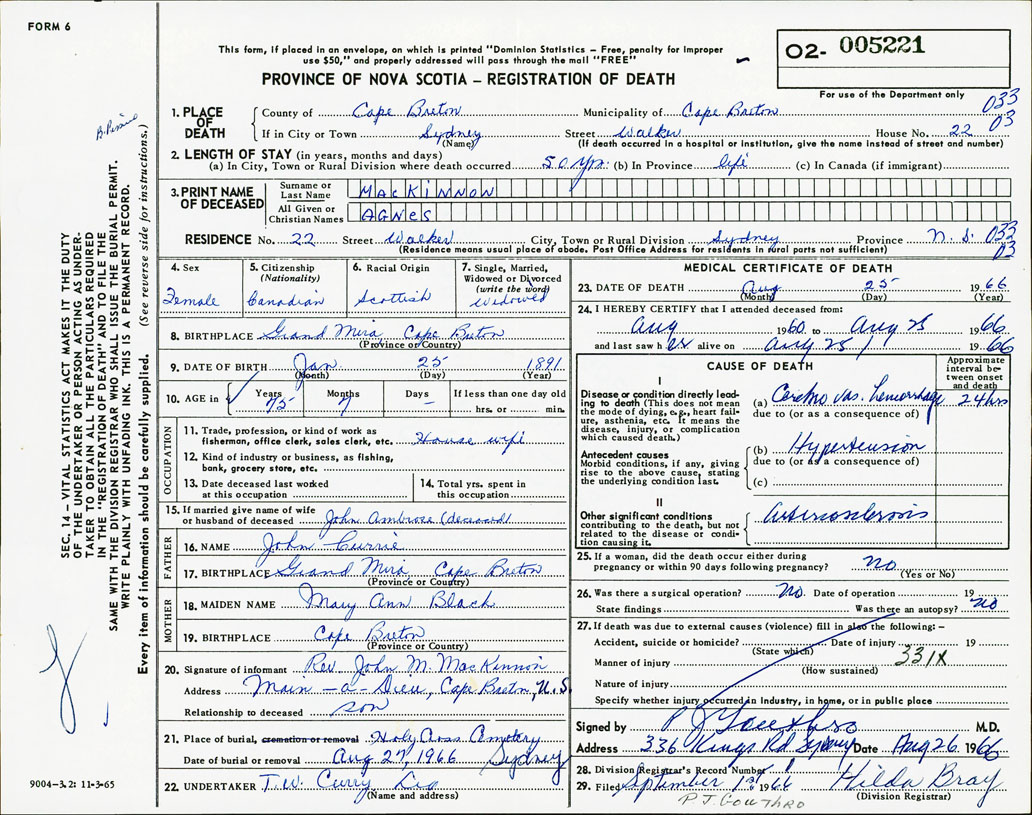 FORM 6
This form, if placed in an envelope, on which is printed "Dominion Statistics – Free, penalty for improper
use $50," and properly addressed will pass through the mail "FREE"
PROVINCE OF NOVA SCOTIA – REGISTRATION OF DEATH
02- 005221
For use of the Department only
033
03
1. PLACE OF DEATH { County of Cape Breton Municipality of Cape Breton
If in City or Town Sydney Street Walker House No. 22
(Name) (If death occurred in a hospital or institution, give the name instead of street and number)
2. LENGTH OF STAY (in years, months and days)
(a) In City, Town or Rural Division where death occurred 50 yrs. (b) In Province life (c) In Canada (if immigrant)
3. PRINT NAME OF DECEASED { Surname or Last Name MACKINNON
All Given or Christian Names AGNES
RESIDENCE No. 22 Street Walker City, Town or Rural Division Sydney Province N.S. 033
(Residence means usual place of abode. Post Office Address for residents in rural parts not sufficient) 03
4. Sex Female
5. Citizenship (Nationality) Canadian
6. Racial Origin Scottish
7. Single, Married, Widowed or Divorced (write the word) Widowed
8. BIRTHPLACE Grand Mira, Cape Breton
(Province or Country)
9. DATE OF BIRTH Jan. 25 1891
(Month) (Day) (Year)
10. AGE in { Years 75 Months 7 Days – If less than one day old hrs. or min.
OCCUPATION
11. Trade, profession, or kind of work as fisherman, office clerk, sales clerk, etc. House wife
12. Kind of industry or business, as fishing, bank, grocery store, etc.
13. Date deceased last worked at this occupation
14. Total yrs. spent in this occupation
15. If married give name of wife or husband of deceased John Ambrose (deceased)
FATHER
16. NAME John Currie
17. BIRTHPLACE Grand Mira, Cape Breton
(Province or Country)
MOTHER
18. MAIDEN NAME Mary Ann Black
19. BIRTHPLACE Cape Breton
(Province or Country)
20. Signature of informant Rev. John M. MacKinnon
Address Main-a-Dieu, Cape Breton, N.S.
Relationship to deceased son
21. Place of burial, cremation or removal Holy Cross Cemetery
Date of burial or removal Aug 27, 1966 Sydney
22. UNDERTAKER T.W. Curry Ltd
(Name and address)
MEDICAL CERTIFICATE OF DEATH
23. DATE OF DEATH Aug 25 1966
(Month) (Day) (Year)
24. I HEREBY CERTIFY that I attended deceased from:
Aug 1960 to Aug 25 1966
and last saw her alive on Aug 25 1966
CAUSE OF DEATH
Approximate interval between onset and death
I
Disease or condition directly leading to death (This does not mean the mode of dying, e.g., heart failure, asthenia, etc. It means the disease, injury, or complication which caused death.)
(a) Cerebro vas. hemorrhage 24 hrs
due to (or as a consequence of)
Antecedent causes
Morbid conditions, if any, giving rise to the above cause, stating the underlying condition last.
(b) Hypertension
due to (or as a consequence of)
(c)
II
Other significant conditions contributing to the death, but not related to the disease or condition causing it. Arteriosclerosis
25. If a woman, did the death occur either during pregnancy or within 90 days following pregnancy? No
(Yes or No)
26. Was there a surgical operation? No. Date of operation 19
State findings Was there an autopsy? No
27. If death was due to external causes (violence) fill in also the following: –
Accident, suicide or homicide? Date of injury 19
(State which) 331X
Manner of injury
(How sustained)
Nature of injury
Specify whether injury occurred in industry, in home, or in public place
Signed by P J Gouthro M.D.
Address 336 Kings Rd Sydney Date Aug 26 1966
28. Division Registrar's Record Number
29. Filed September 1st 1966 Hilda Bray
P.J. GOUTHRO (Division Registrar)
SEC. 14 – VITAL STATISTICS ACT MAKES IT THE DUTY
OF THE UNDERTAKER OR PERSON ACTING AS UNDER-
TAKER TO OBTAIN ALL THE PARTICULARS REQUIRED
IN THE "REGISTRATION OF DEATH" AND TO FILE THE
SAME WITH THE DIVISION REGISTRAR WHO SHALL ISSUE THE BURIAL PERMIT.
WRITE PLAINLY WITH UNFADING INK. THIS IS A PERMANENT RECORD.
Every item of information should be carefully supplied. (See reverse side for instructions.)
9004–3.2: 11-3-65